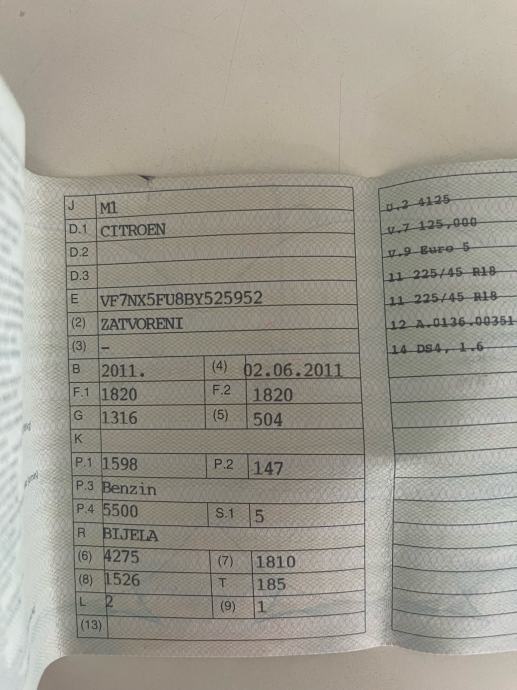 J M1
D.1 CITROEN
D.2
D.3
E VF7NX5FU8BY525952
(2) ZATVORENI
(3) –
B 2011. (4) 02.06.2011
F.1 1820 F.2 1820
G 1316 (5) 504
K
P.1 1598 P.2 147
P.3 Benzin
P.4 5500 S.1 5
R BIJELA
(6) 4275 (7) 1810
(8) 1526 T 185
L 2 (9) 1
(13)
U.2 4125
V.7 125,000
V.9 Euro 5
11 225/45 R18
11 225/45 R18
12 A.0136.00351
14 DS4, 1.6